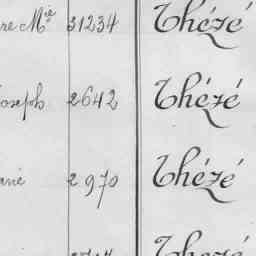 re Mie 31234 Thézé
Joseph 2642 Thézé
ané 2970 Thézé
Thezé